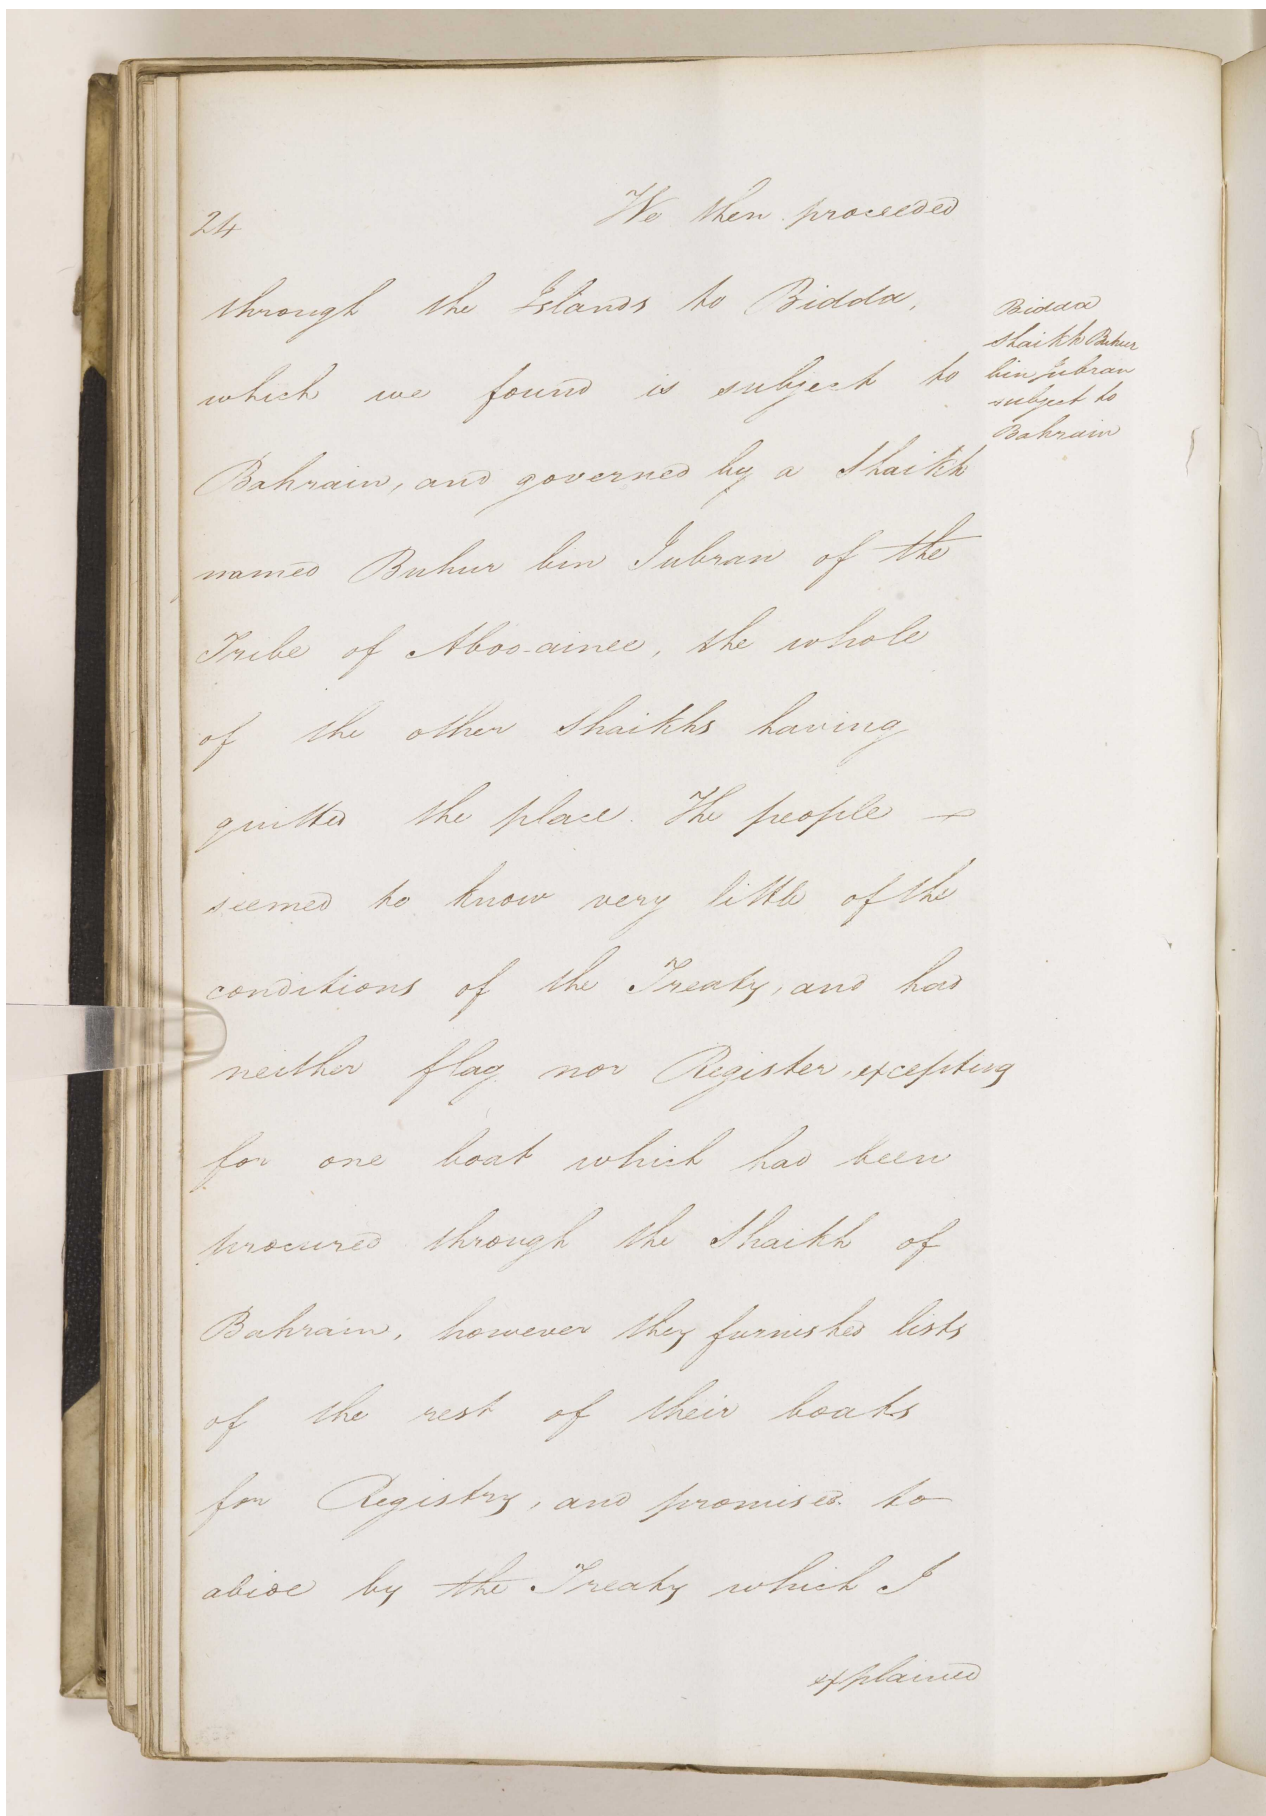 24
We then proceeded
through the Islands to Bidda,
which we found is subject to
Bahrain, and governed by a Shaikh
named Buhur bin Jubran of the
Tribe of Aboo-ainee, the whole
of the other Shaikhs having
quitted the place. The people
seemed to know very little of the
conditions of the Treaty, and had
neither flag nor Register, excepting
for one boat which had been
procured through the Shaikh of
Bahrain, however they furnished lists
of the rest of their boats
for Registry, and promised to
abide by the Treaty which I
explained
Bidda
Shaikh Buhur
bin Jubran
subject to
Bahrain